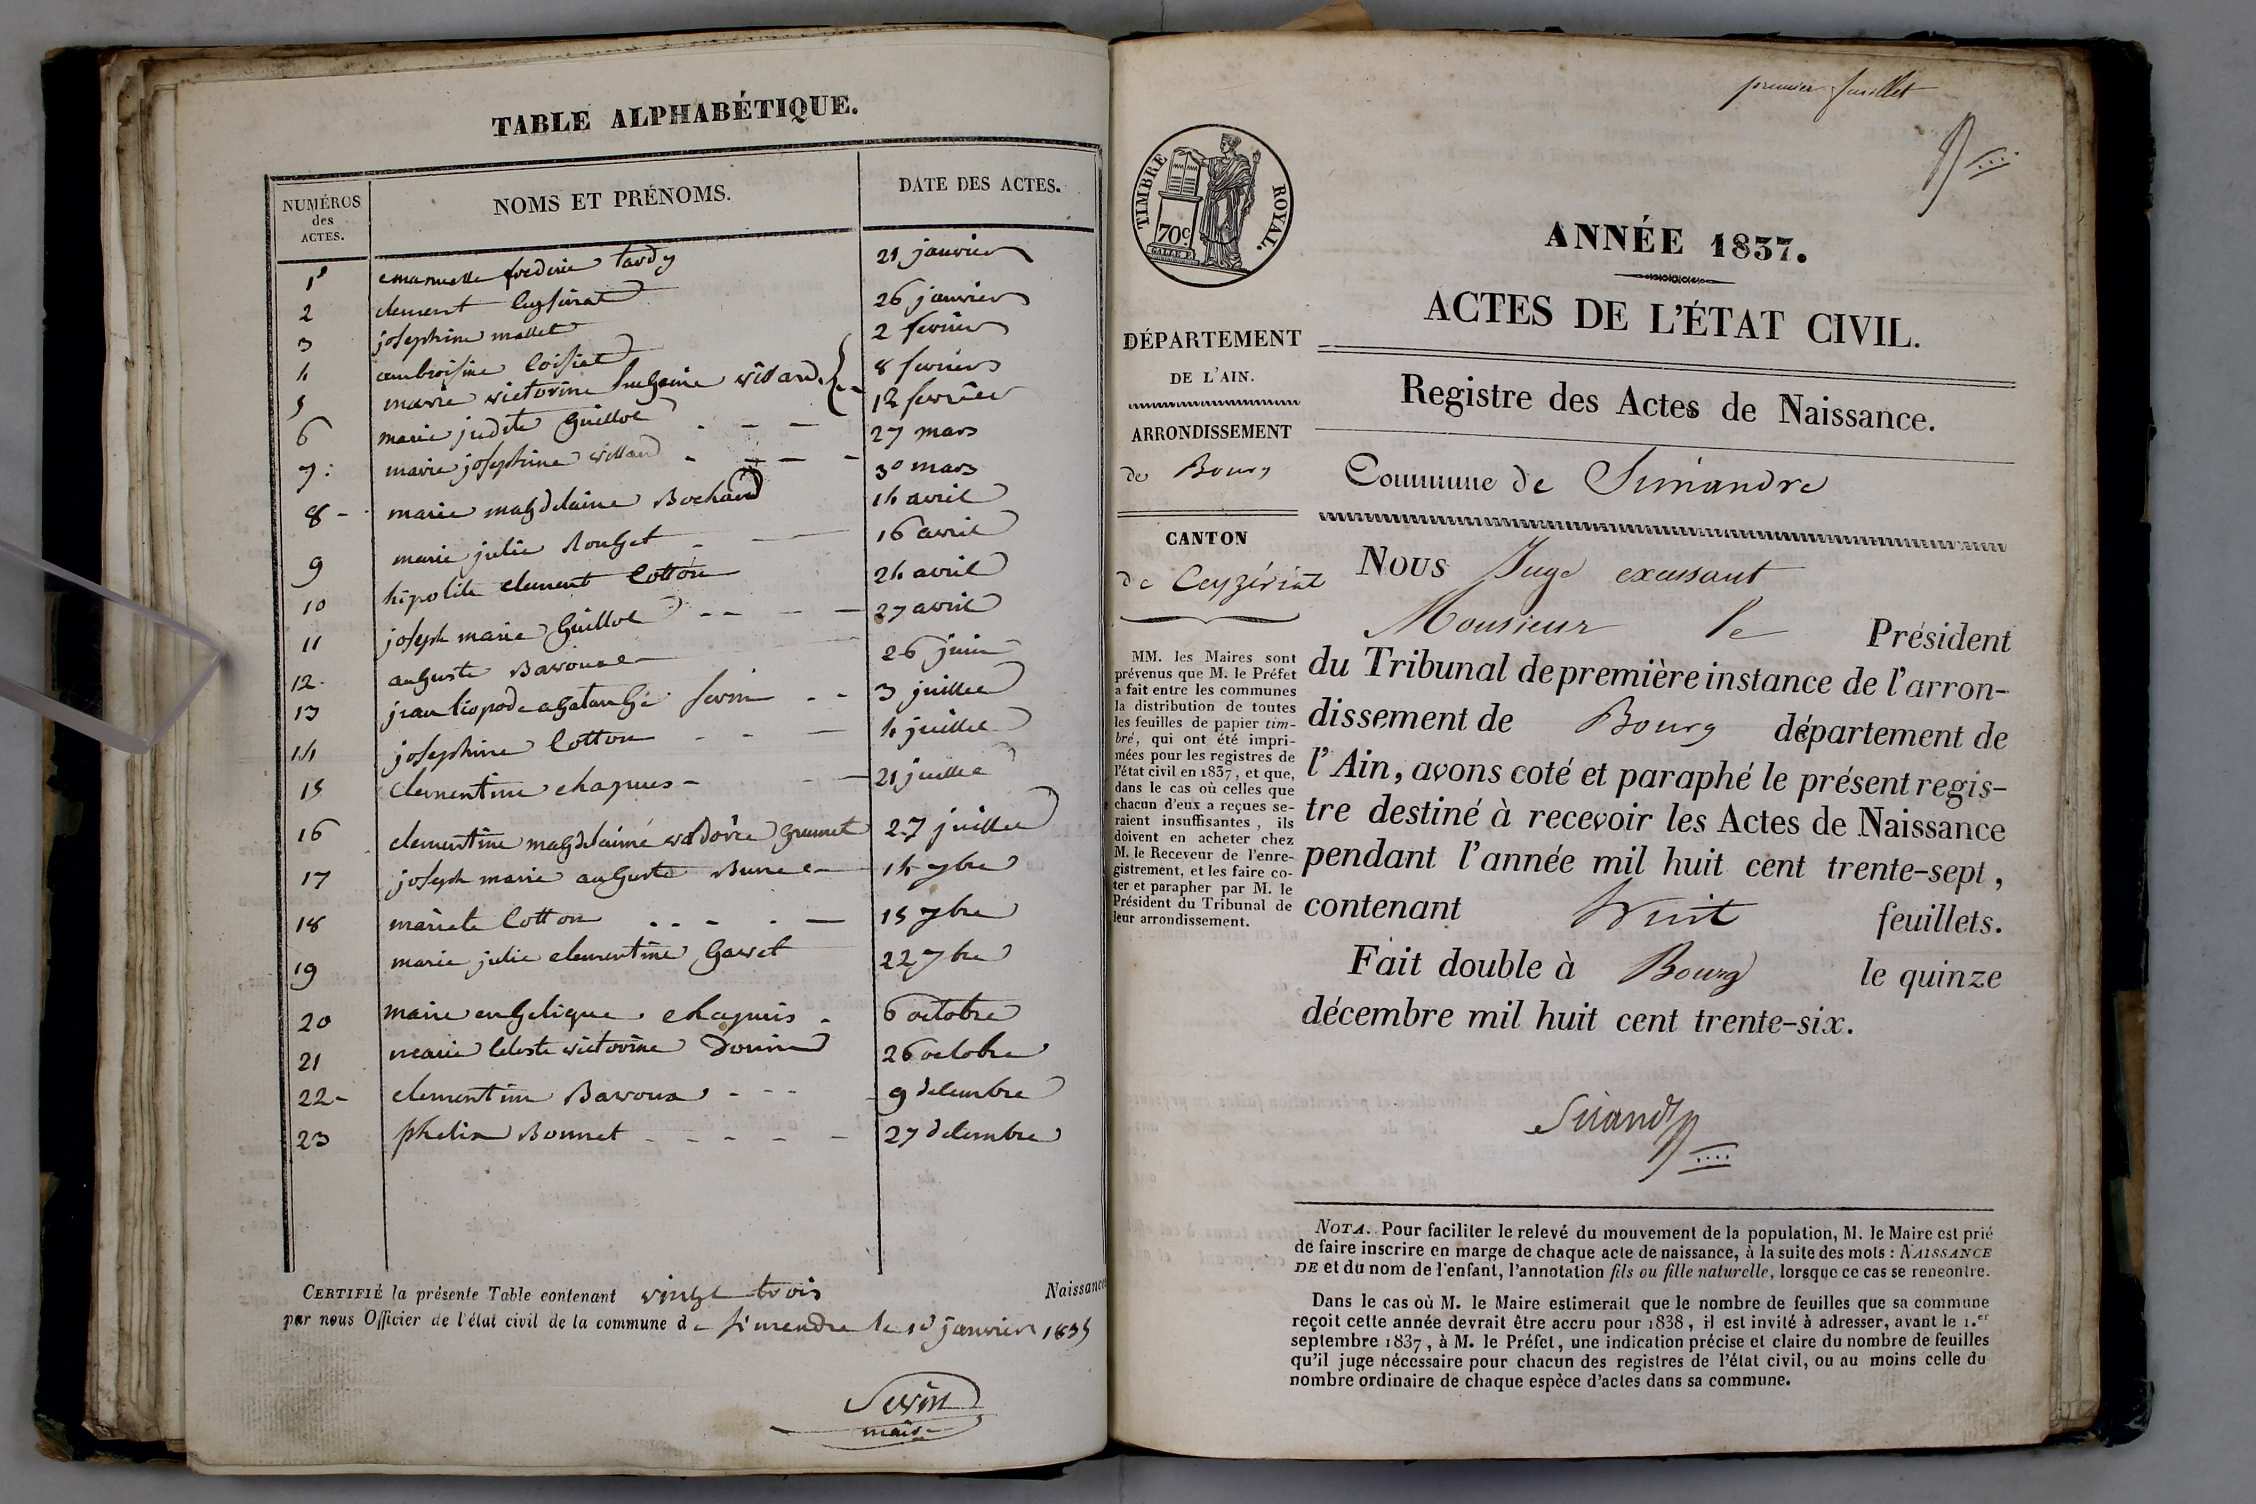 TABLE ALPHABÉTIQUE.
NUMÉROS des ACTES. NOMS ET PRÉNOMS. DATE DES ACTES.
1 emanuelle frederic tardy 21 janvier
2 clement 26 janvier
3 josephine mallet 2 fevrier
4 ambroisine loisiat 8 fevrier
5 marie victorine villard 12 fevrier
6 marie judite Guillot 27 mars
7 marie josephine villard 30 mars
8 - marie magdelaine Bochard 14 avril
9 marie julie Rouget 16 avril
10 hipolite clement Cotton 24 avril
11 joseph marie Guillot 27 avril
12 - auguste Bavoux 26 juin
13 jean 3 juillet
14 josephine Cotton 4 juillet
15 clementine chapuis - 21 juillet
16 clementine magdelaine 27 juillet
17 joseph marie auguste 14 7bre
18 mariete Cotton 15 7bre
19 marie julie clementine 22 7bre
20 marie engelique chapuis - 6 octobre
21 marie celeste victorine 26 octobre
22 - clementine Bavoux 9 decembre
23 phelix Bonnet 27 decembre
CERTIFIÉ la présente Table contenant vingt trois Naissances
par nous Officier de l'état civil de la commune de simendre le janvier
Sevin
maire
premier feuillet
TIMBRE ROYAL.
70 c.
ANNÉE 1837.
ACTES DE L'ÉTAT CIVIL.
Registre des Actes de Naissance.
Commune de Simandre
DÉPARTEMENT
DE L'AIN.
ARRONDISSEMENT
de Bourg
CANTON
de Ceyzériat
MM. les Maires sont
prévenus que M. le Préfet
a fait entre les communes
la distribution de toutes
les feuilles de papier tim-
bré, qui ont été impri-
mées pour les registres de
l'état civil en 1837, et que,
dans le cas où celles que
chacun d'eux a reçues se-
raient insuffisantes, ils
doivent en acheter chez
M. le Receveur de l'enre-
gistrement, et les faire co-
ter et parapher par M. le
Président du Tribunal de
leur arrondissement.
Nous Juge exerssant
Monsieur le Président
du Tribunal de première instance de l'arron-
dissement de Bourg département de
l'Ain, avons coté et paraphé le présent regis-
tre destiné à recevoir les Actes de Naissance
pendant l'année mil huit cent trente-sept,
contenant huit feuillets.
Fait double à Bourg le quinze
décembre mil huit cent trente-six.
NOTA. Pour faciliter le relevé du mouvement de la population, M. le Maire est prié
de faire inscrire en marge de chaque acte de naissance, à la suite des mots : NAISSANCE
DE et du nom de l'enfant, l'annotation fils ou fille naturelle, lorsque ce cas se rencontre.
Dans le cas où M. le Maire estimerait que le nombre de feuilles que sa commune
reçoit cette année devrait être accru pour 1838, il est invité à adresser, avant le 1.er
septembre 1837, à M. le Préfet, une indication précise et claire du nombre de feuilles
qu'il juge nécessaire pour chacun des registres de l'état civil, ou au moins celle du
nombre ordinaire de chaque espèce d'actes dans sa commune.